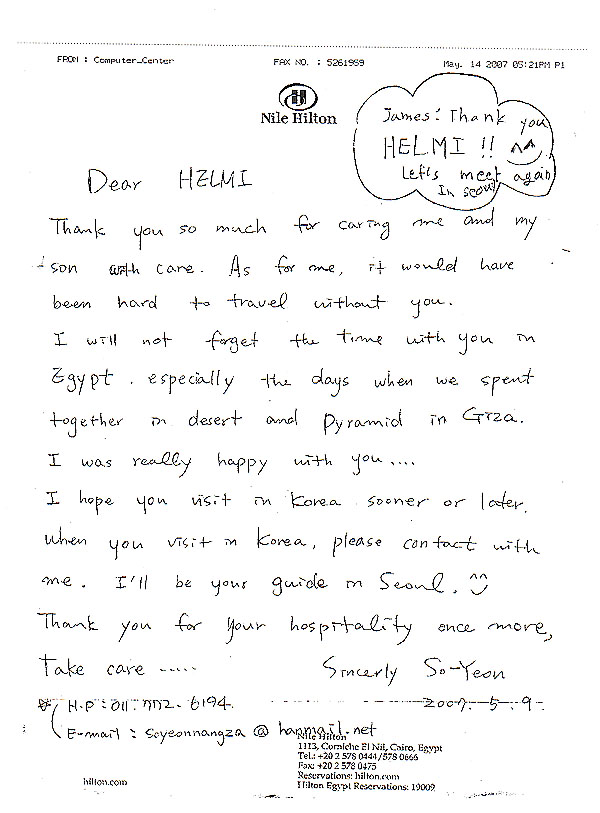 FROM : Computer_Center FAX NO. : 5261959 May. 14 2007 05:21PM P1
Nile Hilton
James: Thank you
HELMI !! ^^
Left's meet again
In seoul
Dear HELMI
Thank you so much for caring me and my
son with care. As for me, it would have
been hard to travel without you.
I will not forget the time with you in
Egypt. especially the days when we spent
together in desert and pyramid in Giza.
I was really happy with you....
I hope you visit in Korea sooner or later.
when you visit in Korea, please contact with
me. I'll be your guide in Seoul. ^^
Thank you for your hospitality once more,
take care .....
Sincerly So-Yeon
H.P : 011. 772. 6194. 2007. 5. 9.
E-mail : Soyeonnangza @ hanmail.net
Nile Hilton
1113, Corniche El Nil, Cairo, Egypt
Tel.: +20 2 578 0444/578 0666
Fax: +20 2 578 0475
Reservations: hilton.com
hilton.com Hilton Egypt Reservations: 19009